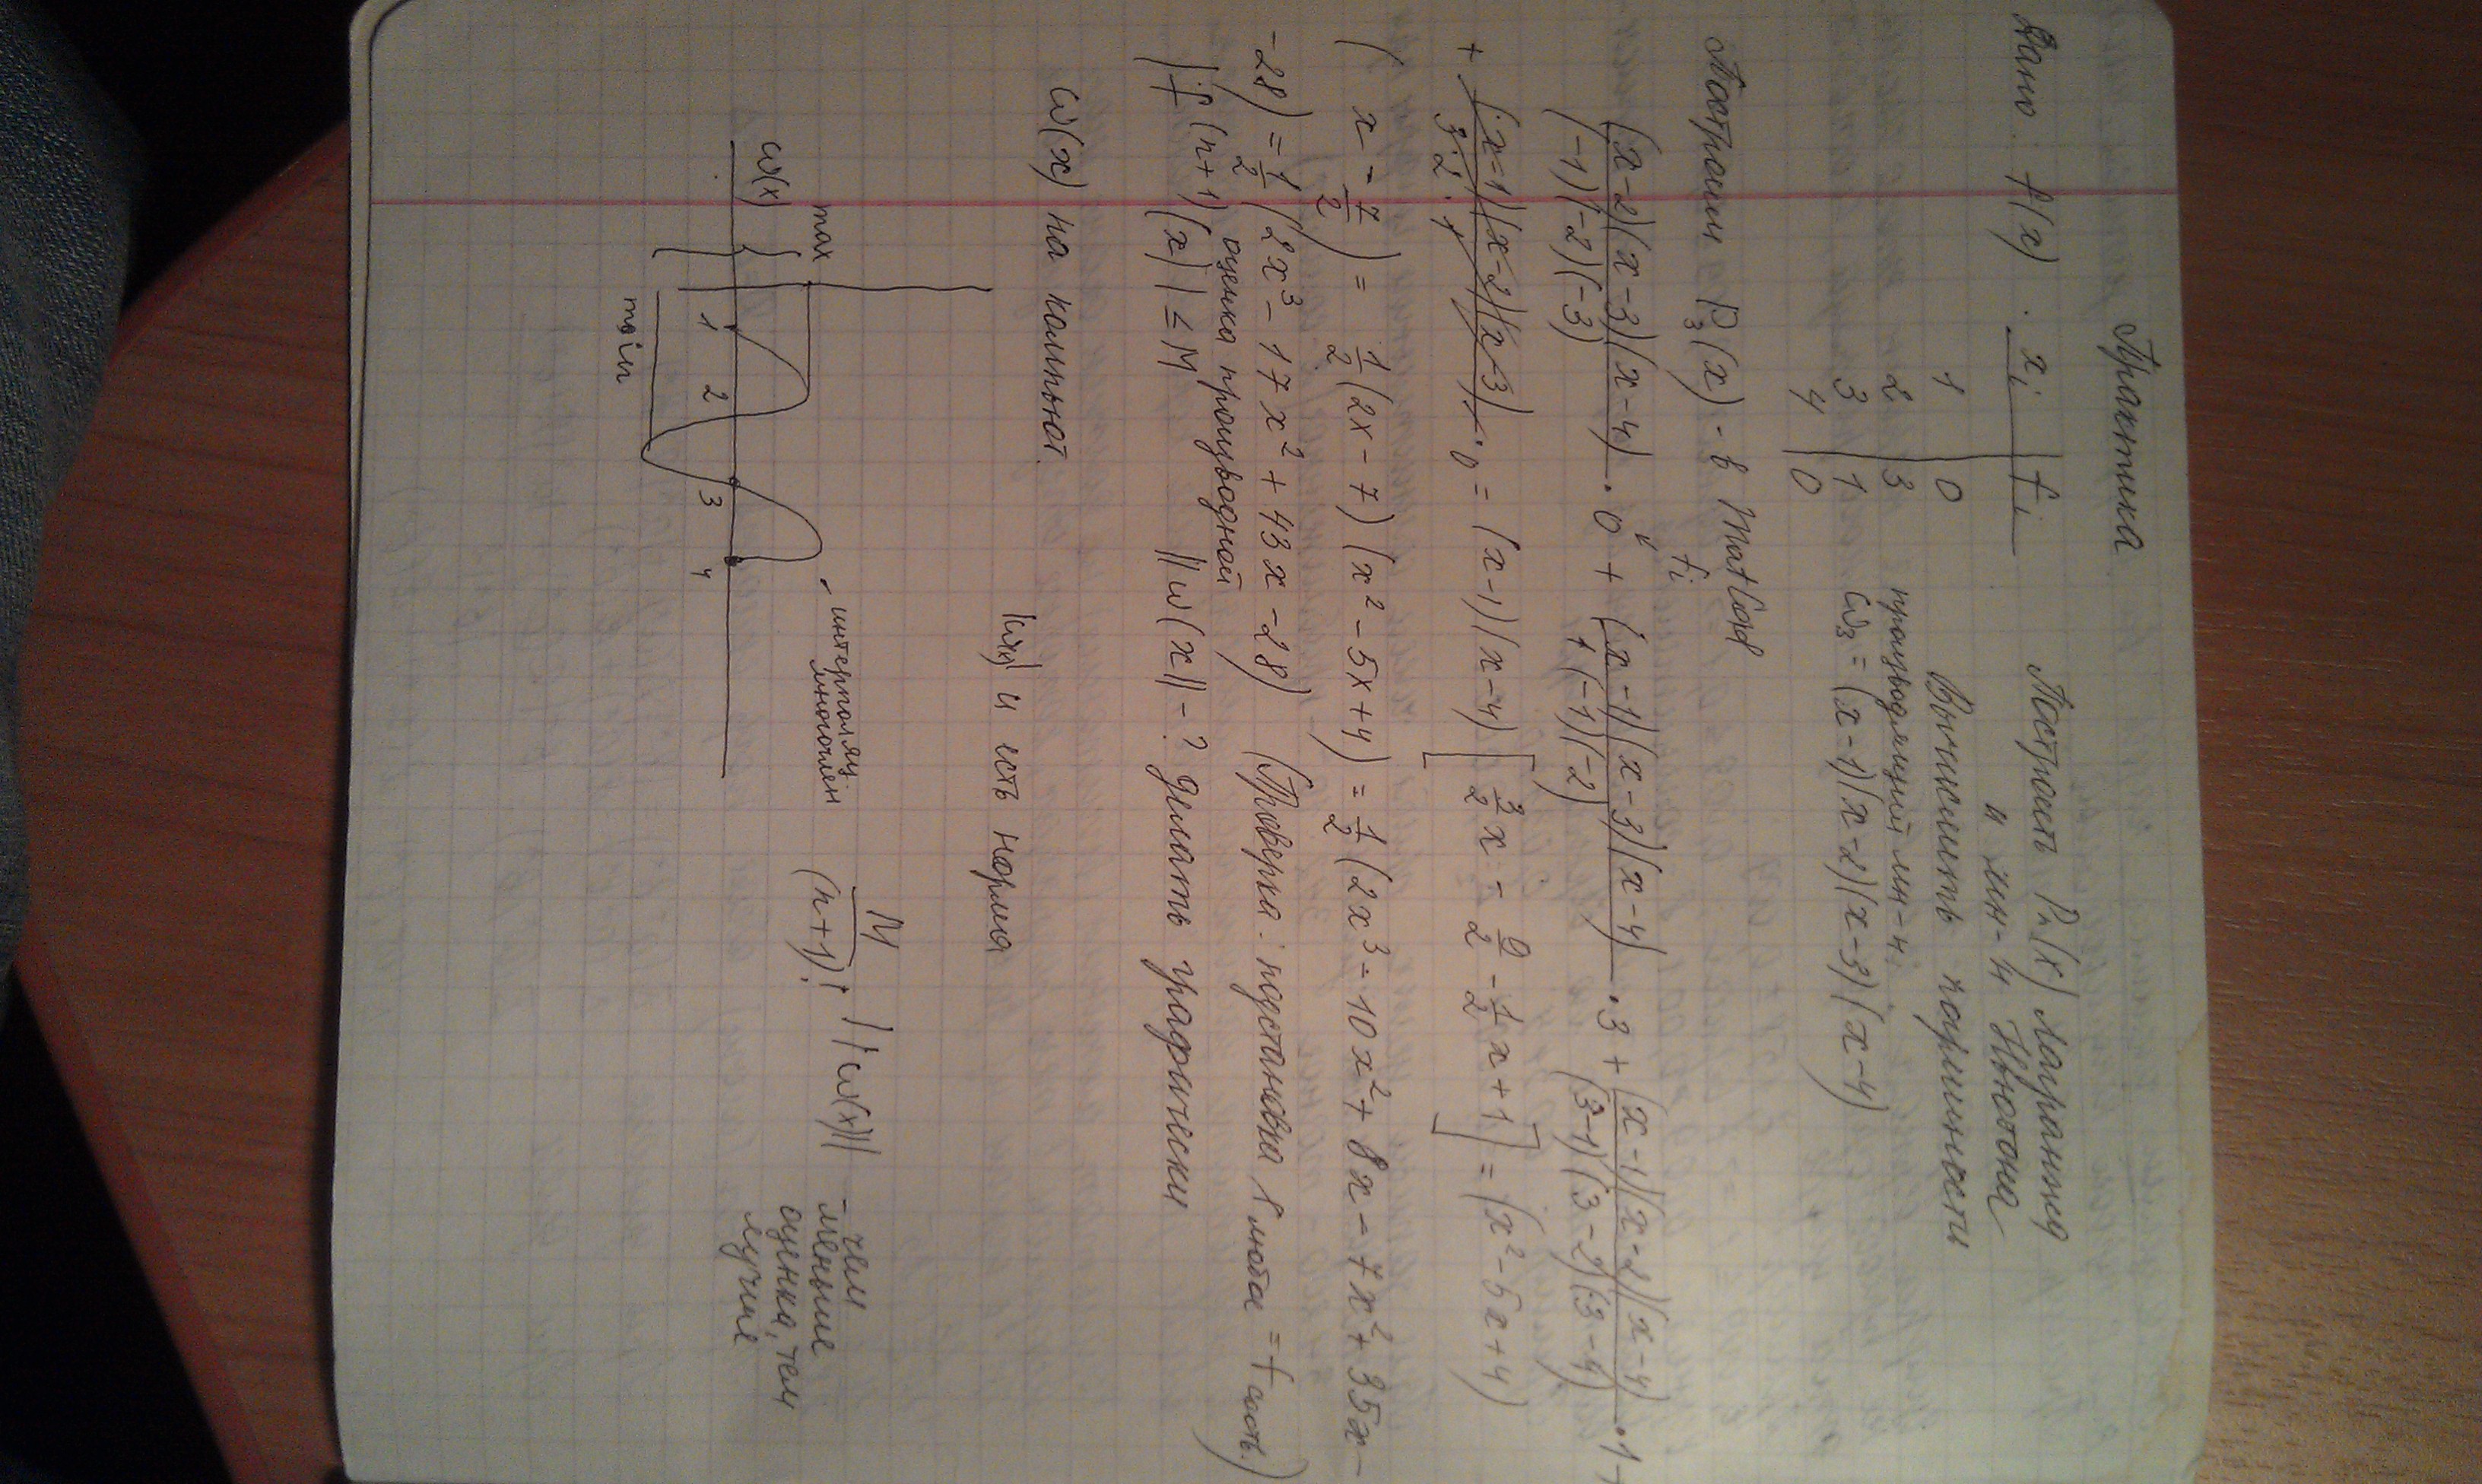 Практика
Дано: f(x). xi | fi
1 | 0
2 | 3
3 | 1
4 | 0
Построить Pn(x) Лагранжа
и мн-н Ньютона
Вычислить погрешности
производящий мн-н:
ω3 = (x-1)(x-2)(x-3)(x-4)
Построим P3(x) - в Matlab
fi
(x-2)(x-3)(x-4)/(-1)(-2)(-3) · 0 + (x-1)(x-3)(x-4)/1·(-1)(-2) · 3 + (x-1)(x-2)(x-4)/(3-1)(3-2)(3-4) · 1 +
+ (x-1)(x-2)(x-3)/3·2·1 · 0 = (x-1)(x-4) [3/2 x - 9/2 - 1/2 x + 1] = (x² - 5x + 4)
(x - 7/2) = 1/2 (2x - 7)(x² - 5x + 4) = 1/2 (2x³ - 10x² + 8x - 7x² + 35x -
-28) = 1/2 (2x³ - 17x² + 43x - 28) (Проверка: подстановка 1 люба = f соотв.)
оценка производной
|f^(n+1)(x)| ≤ M ||ω(x|| - ? делать графически
ω(x) на компьют.
|ω(x)| и есть норма
max
ω(x)
1 2 3 4
min
интерполяц.
многочлен
M/(n+1)! ||ω(x)|| - чем
меньше
оценка, тем
лучше